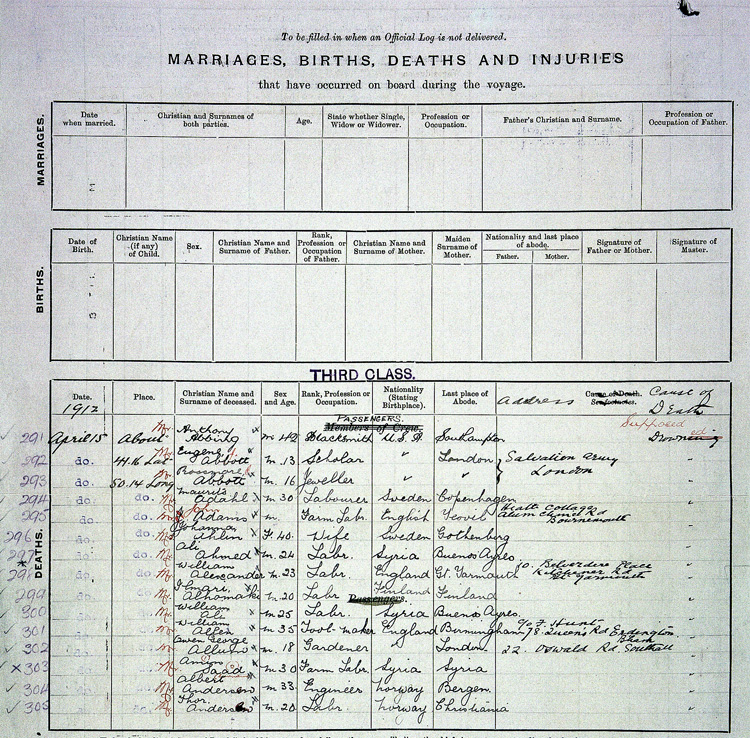 To be filled in when an Official Log is not delivered.
MARRIAGES, BIRTHS, DEATHS AND INJURIES
that have occurred on board during the voyage.
MARRIAGES.
Date when married. Christian and Surnames of both parties. Age. State whether Single, Widow or Widower. Profession or Occupation. Father's Christian and Surname. Profession or Occupation of Father.
BIRTHS.
Date of Birth. Christian Name (if any) of Child. Sex. Christian Name and Surname of Father. Rank, Profession or Occupation of Father. Christian Name and Surname of Mother. Maiden Surname of Mother. Nationality and last place of abode. Father. Mother. Signature of Father or Mother. Signature of Master.
THIRD CLASS.
DEATHS.
Date. 1912 Place. Christian Name and Surname of deceased. Sex and Age. Rank, Profession or Occupation. Nationality (Stating Birthplace). Last place of Abode. Address Cause of Death. Cause of Death
PASSENGERS.
Members of Crew.
Supposed
291 April 15 About Mr. Anthony Abbing m 42 Blacksmith U.S.A. Southampton Drowning ed
292 do. 41.16 Lat Mr. Eugene Abbott m. 13 Scholar " London Salvation Army London "
293 do. 50.14 Long Abbott m. 16 Jeweller " " "
294 do. do. Mauritz Adahl m 30 Labourer Sweden Copenhagen "
295 do. do. John Adams m. Farm Labr. English Yeovil Bournemouth "
296 do. do. Johanna Ahlin F. 40. Wife Sweden Gothenburg "
297 do. do. Ali Ahmed m. 24 Labr. Syria Buenos Ayres "
298 do. do. William Alexander m. 23 Labr. England Gt. Yarmouth 10. Belvedere Place Kitchener Rd Gt Yarmouth "
299 do. do. Ilmari Alhomaki m. 20 Labr Finland Finland "
Passengers.
300 do. do. William Ali m 25 Labr. Syria Buenos Ayres "
301 do. do. William Allen m 35 Tool-maker England Birmingham c/o F. Hunt 78. Queens Rd Erdington "
302 do. do. Owen George Allum m. 18 Gardener " London. 22. Oswald Rd. Southall "
303 do. do. Amin Saad m 30 Farm Labr. Syria Syria "
304 do. do. Albert Andersen m 33. Engineer Norway Bergen. "
305 do. do. Thor. Andersen m. 20 Labr. Norway Christiania "